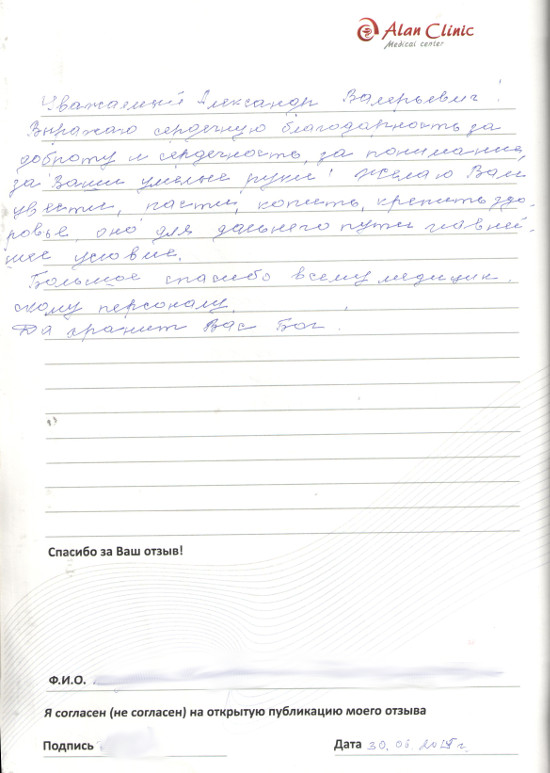 Alan Clinic
Medical center
Уважаемый Александр Валерьевич!
Выражаю сердечную благодарность за
доброту и сердечность, за понимание,
за Ваши умелые руки! Желаю Вам
цвести, расти, копить, крепить здо-
ровье, оно для дальнего пути главней-
шее условие.
Большое спасибо всему медицин
скому персоналу.
Да хранит Вас Бог.
Спасибо за Ваш отзыв!
Ф.И.О.
Я согласен (не согласен) на открытую публикацию моего отзыва
Подпись
Дата 30.06.